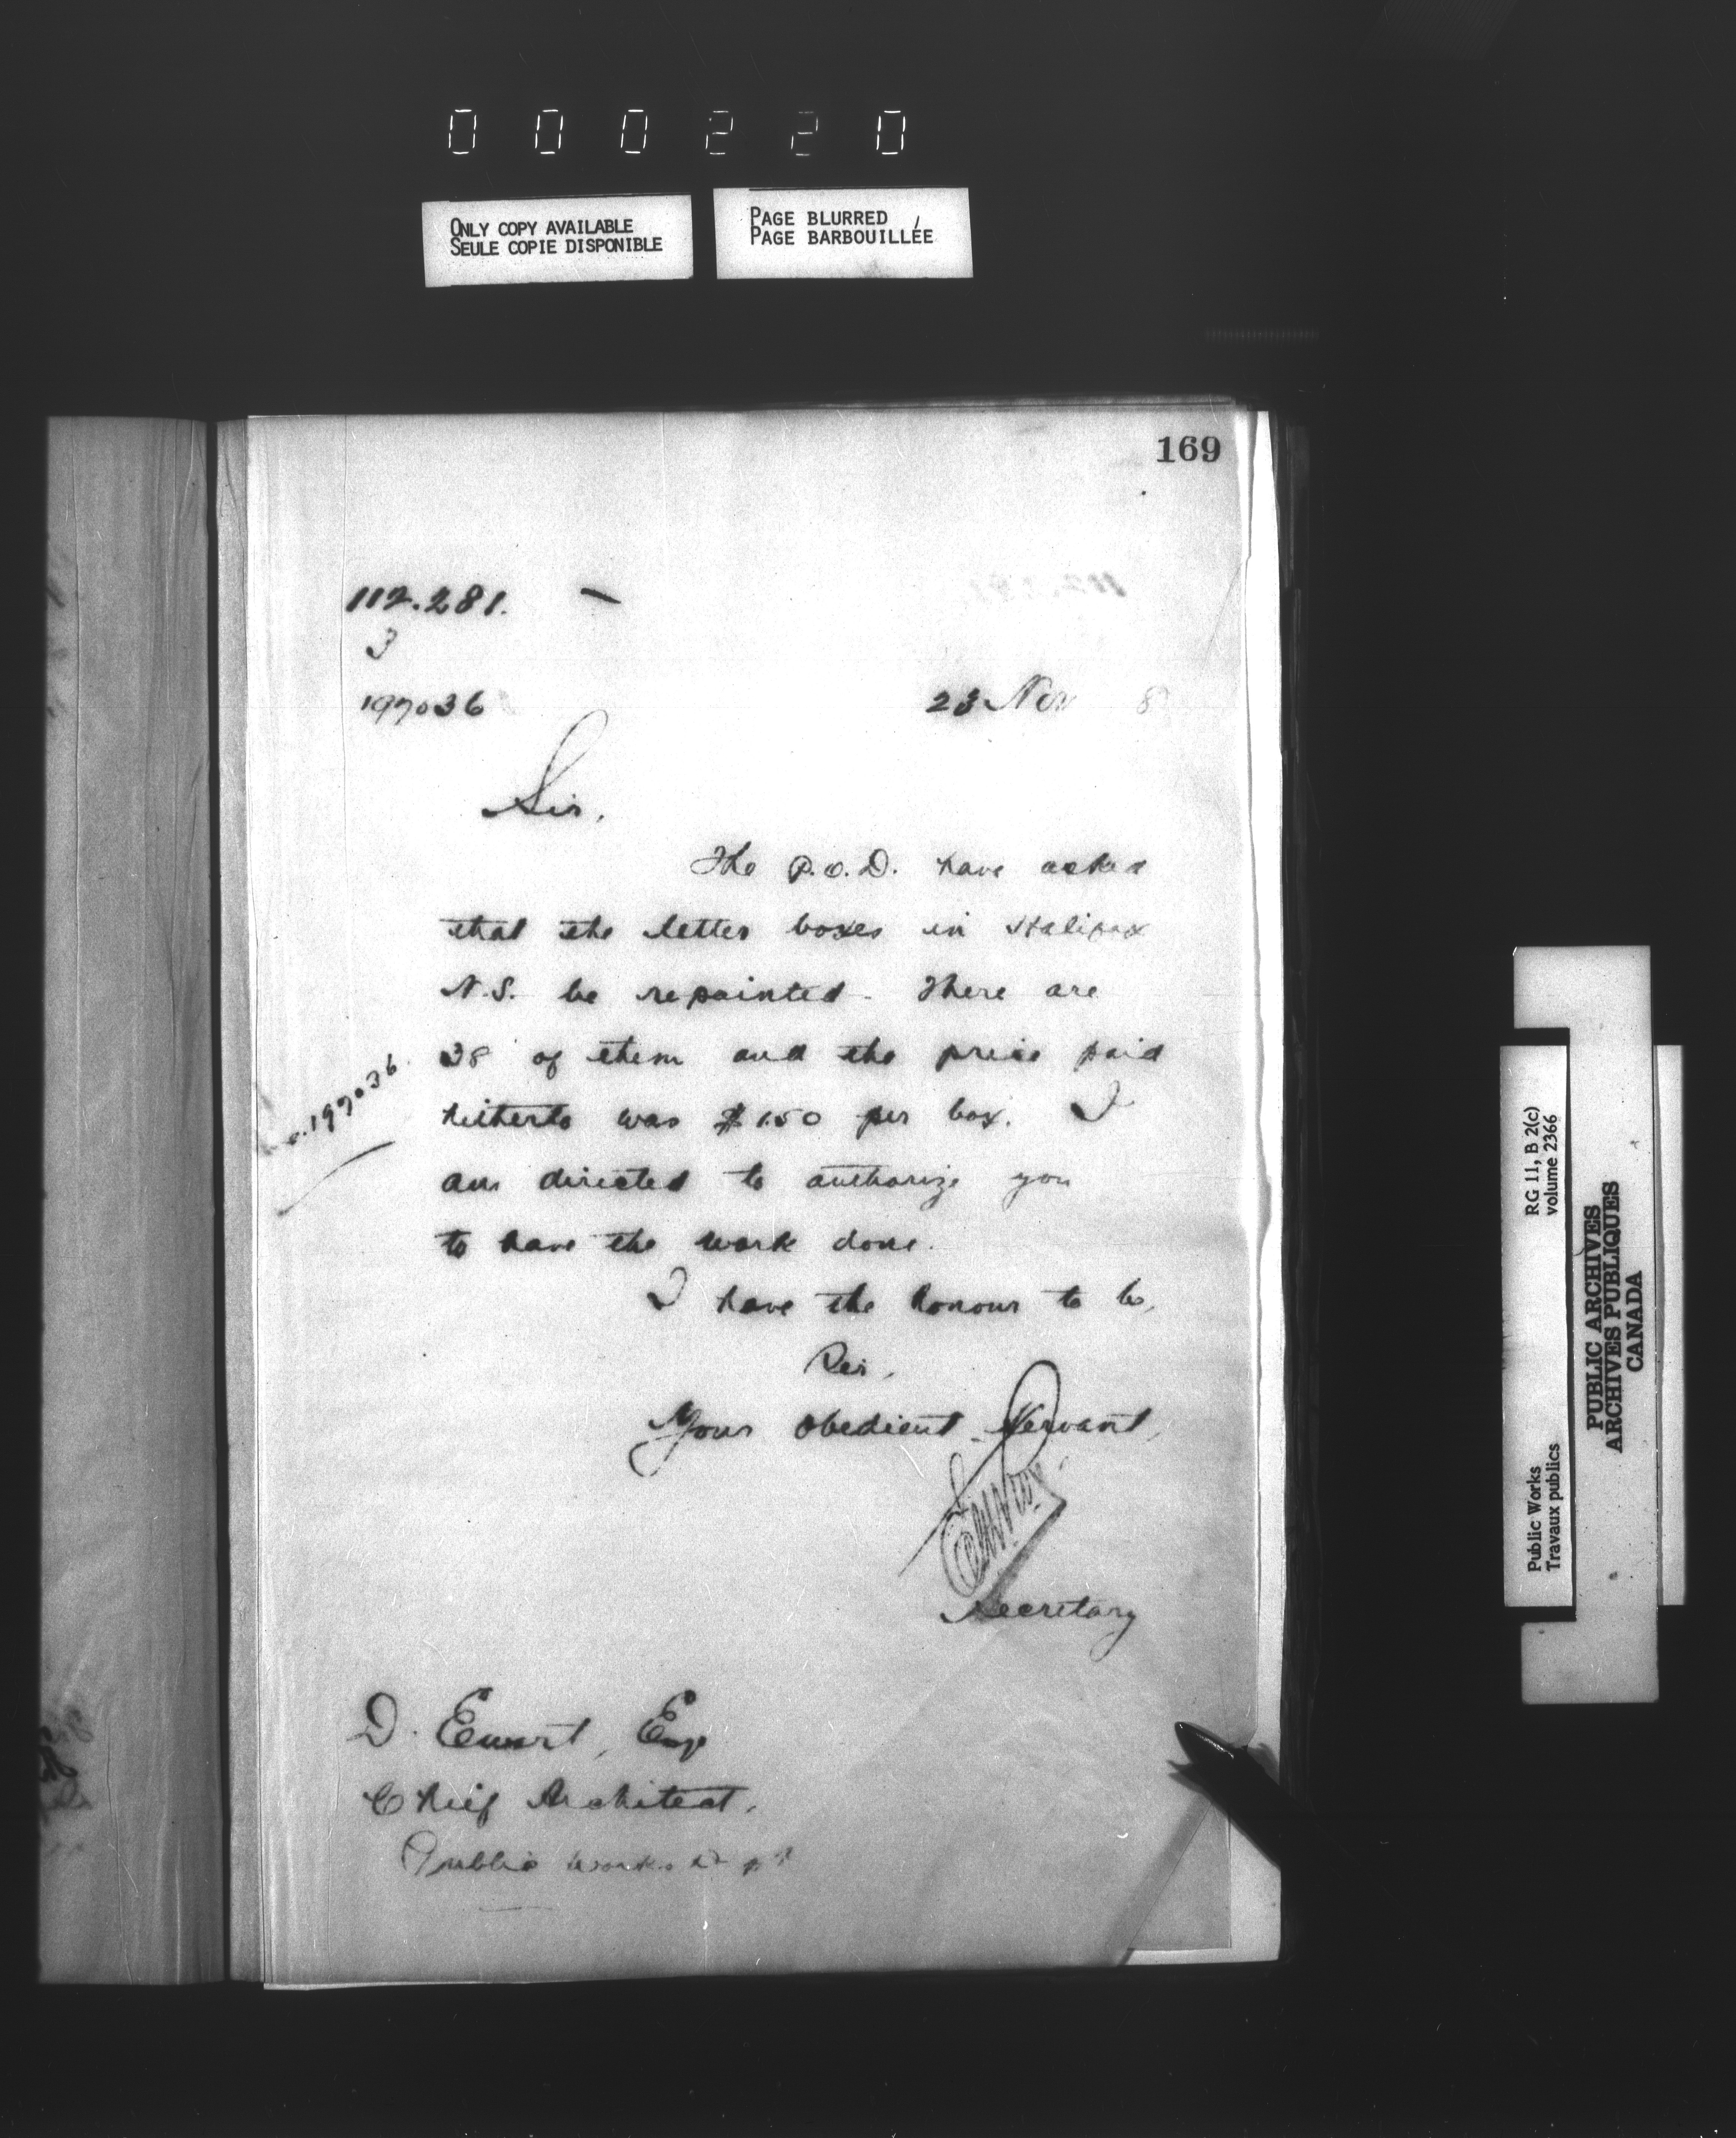 000220
ONLY COPY AVAILABLE
SEULE COPIE DISPONIBLE
PAGE BLURRED
PAGE BARBOUILLÉE
169
112.281. –
3
197036
23 Nov 8
Sir,
The P.O.D. have asked
that the letter boxes in Halifax
N.S. be repainted. There are
38 of them and the price paid
hitherto was $1.50 per box. I
am directed to authorize you
to have the work done.
197036
I have the honour to be,
Sir,
Your obedient Servant,
Secretary
D. Ewart, Esq
Chief Architect,
Public Works Dept
RG 11, B 2(c)
volume 2366
Public Works
Travaux publics
PUBLIC ARCHIVES
ARCHIVES PUBLIQUES
CANADA